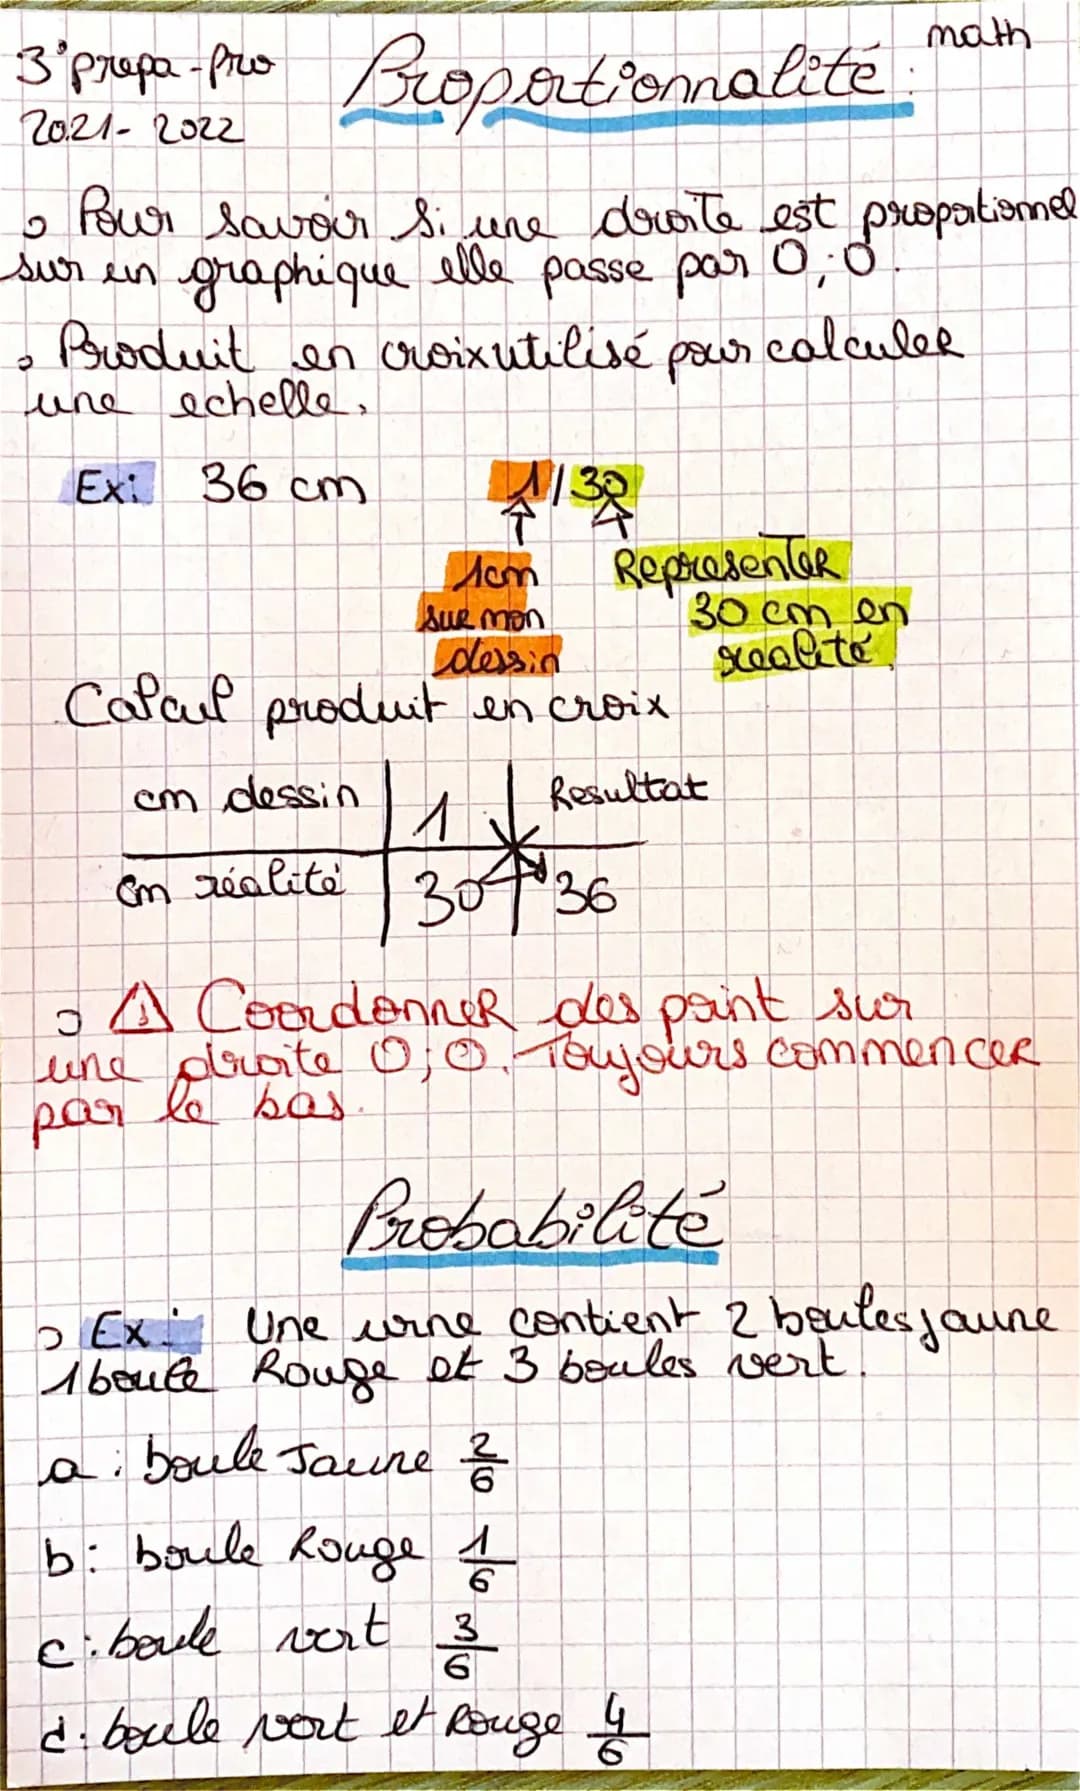 3°prepa-Pro
math
Proportionnalité:
2021-2022
Pour savoir si une droite est proportionnel
sur un graphique elle passe par 0;0.
Produit en croix utilisé pour calculer
une echelle.
Ex: 36 cm 1/30
1cm Representer
sur mon 30 cm en
dessin realité
Calcul produit en croix
cm dessin 1 Resultat
cm réalité 30 36
⚠ Coordonner des point sur
une droite 0;0. Toujours commencer
par le bas.
Probabilité
Ex: Une urne contient 2 boules jaune
1 boule Rouge et 3 boules vert.
a: boule Jaune 2/6
b: boule Rouge 1/6
c: boule vert 3/6
d: boule vert et Rouge 4/6